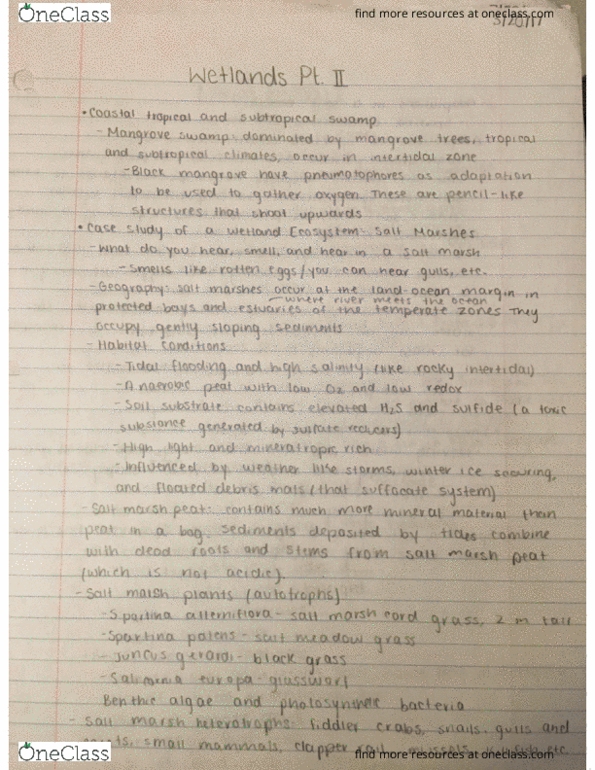 OneClass
find more resources at oneclass.com
Wetlands Pt. II
• Coastal tropical and subtropical swamp
- Mangrove swamp: dominated by mangrove trees, tropical
and subtropical climates, occur in intertidal zone
- Black mangrove have pneumatophores as adaptation
to be used to gather oxygen. These are pencil-like
structures that shoot upwards
• Case study of a Wetland Ecosystem: Salt Marshes
- What do you hear, smell, and hear in a salt marsh
- Smells like rotten eggs/you can hear gulls, etc.
- Geography: salt marshes occur at the land-ocean margin in
where river meets the ocean
protected bays and estuaries of the temperate zones They
occupy gently sloping sediments
- Habitat Conditions
- Tidal flooding and high salinity (like rocky intertidal)
- Anaerobic peat with low O2 and low redox
- Soil substrate contains elevated H2S and sulfide (a toxic
substance generated by sulfate reducers)
- High light and minerotropic rich
- Influenced by weather like storms, winter ice scouring,
and floated debris mats (that suffocate system)
- Salt marsh peat: contains much more mineral material than
peat in a bog. Sediments deposited by tides combine
with dead roots and stems from salt marsh peat
(which is not acidic).
- Salt marsh plants (autotrophs)
- Spartina alterniflora - salt marsh cord grass, 2 m tall
- Spartina patens - salt meadow grass
- Juncus gerardi - black grass
- Salicornia europa - glasswort
Benthic algae and photosynthetic bacteria
- Salt marsh heterotrophs: fiddler crabs, snails, gulls and
small mammals, clapper rail, etc.
OneClass
find more resources at oneclass.com